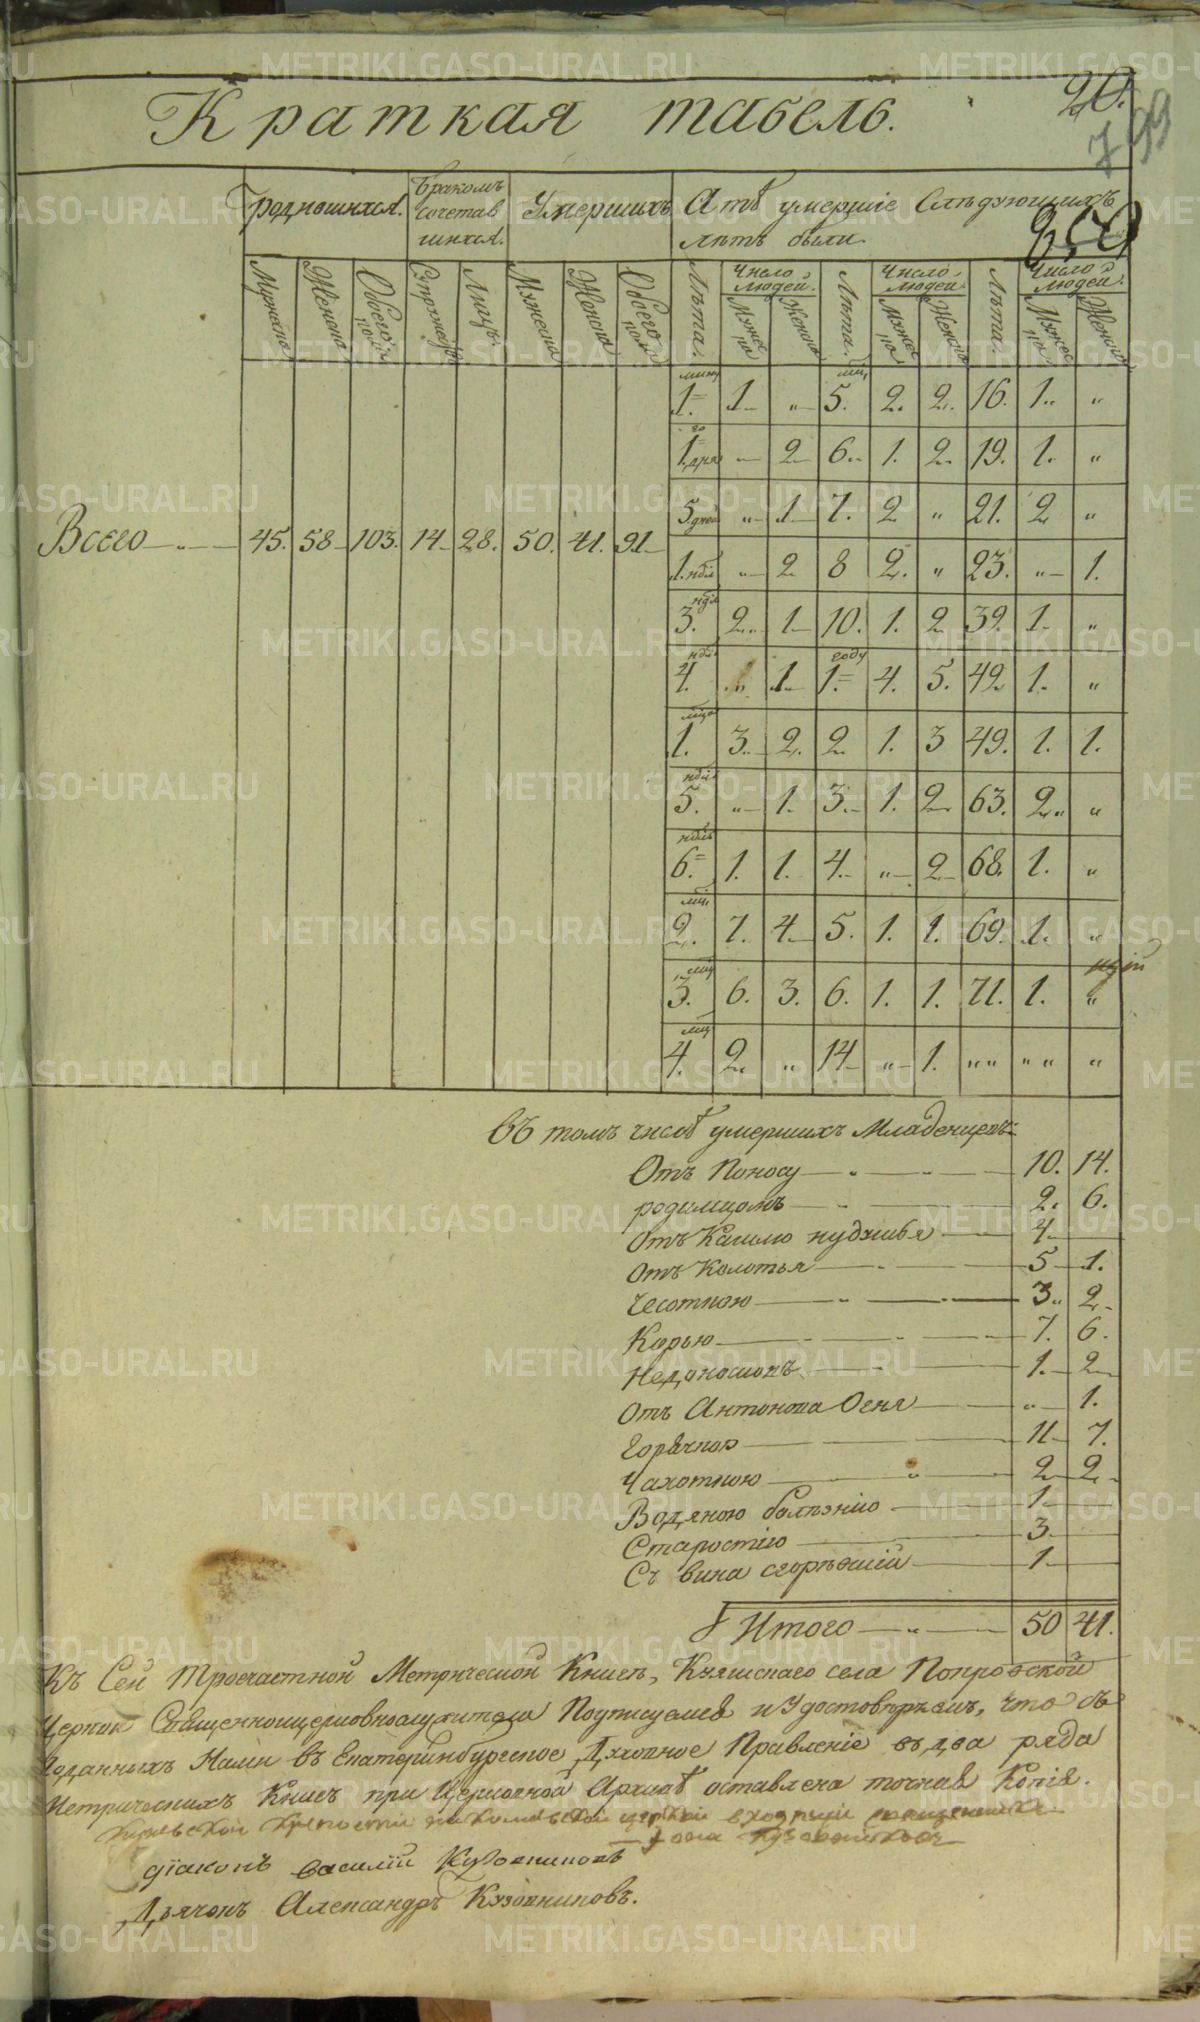 Краткая табель.
20.
799
Родившихся.
Бракомъ
сочетав
шихся.
Умершихъ
А тѣ умершіе Слѣдующихъ
лѣтъ были.
Мужеска
Женска
Обоего пола
Лицъ.
Мужеска
Женска
Обоего пола
Лѣта.
Число людей.
Мужес ка
Женска
Лѣта.
Число людей.
Мужес ка
Женска
Лѣта.
Число людей.
Мужес ка
Женска
Всего 45. 58 103. 14 28. 50. 41. 91
1. 1. „ 5. 2. 2. 16. 1. „
1. дня „ 2 6. 1. 2. 19. 1. „
5 дней „ 1 7. 2 „ 21. 2 „
1. нд҃л „ 2 8 2. „ 23. „ 1.
3. ндл 2. 1 10. 1. 2 39. 1. „
4. ндл „ 1 1. году 4. 5. 42. 1. „
1. мца 3. 2. 2. 1. 3 49. 1. 1.
5. ндл „ 1. 3. 1. 2 63. 2. „
6. ндль 1. 1. 4. „ 2 68. 1. „
2. мц. 7. 4 5. 1. 1. 69. 1. „
3. мц 6. 3. 6. 1. 1. 71. 1. „
4. мц 2. „ 14 „ 1. „ „ „ „ „
въ томъ числѣ умершихъ Младенцевъ
Отъ Поносу 10. 14.
родимцомъ 2. 6.
отъ Кашлю 4.
отъ Колотья 5 1.
Чесоткою 3. 2.
Корью 7. 6.
Недоноскъ 1. 2
отъ Антонова Огня „ 1.
Горячкою 11 7.
Чахоткою 2 2.
Водяною болѣзнію 1.
Старостію 3
Съ вина сгорѣвшій 1.
Итого 50 41.
Къ Сей Троечастной Метрической Книгѣ, села Покровской
Церкви Священноцерковнослужители Подписуемся и Удостовѣряемъ, что съ
поданныхъ Нами въ Екатеринбургское Духовное Правленіе въ два ряда
Метрическихъ Книгъ при Церковной Архивѣ оставлена точная Копія.
крепости церкви священникъ
діаконъ василій Кузовниковъ
Дьячокъ Александръ Кузовниковъ.
METRIKI.GASO-URAL.RU